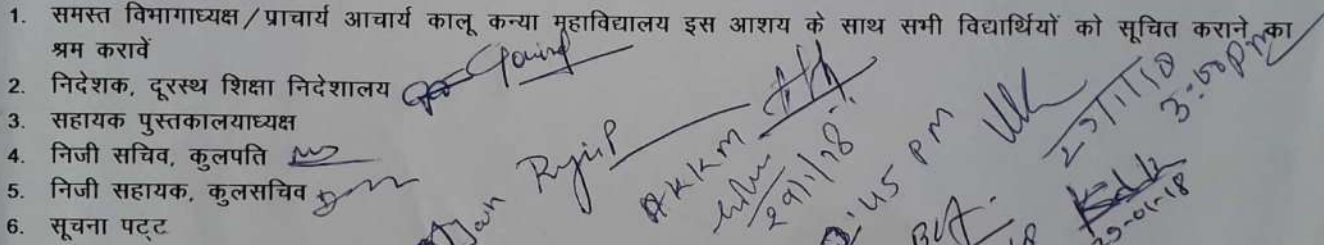 1. समस्त विभागाध्यक्ष/प्राचार्य आचार्य कालू कन्या महाविद्यालय इस आशय के साथ सभी विद्यार्थियों को सूचित कराने का
श्रम करावें
2. निदेशक, दूरस्थ शिक्षा निदेशालय
3. सहायक पुस्तकालयाध्यक्ष
4. निजी सचिव, कुलपति
5. निजी सहायक, कुलसचिव
6. सूचना पट्ट
AKKM
29/1/18
:45 PM
29/1/18
3:50 PM
29-01-18